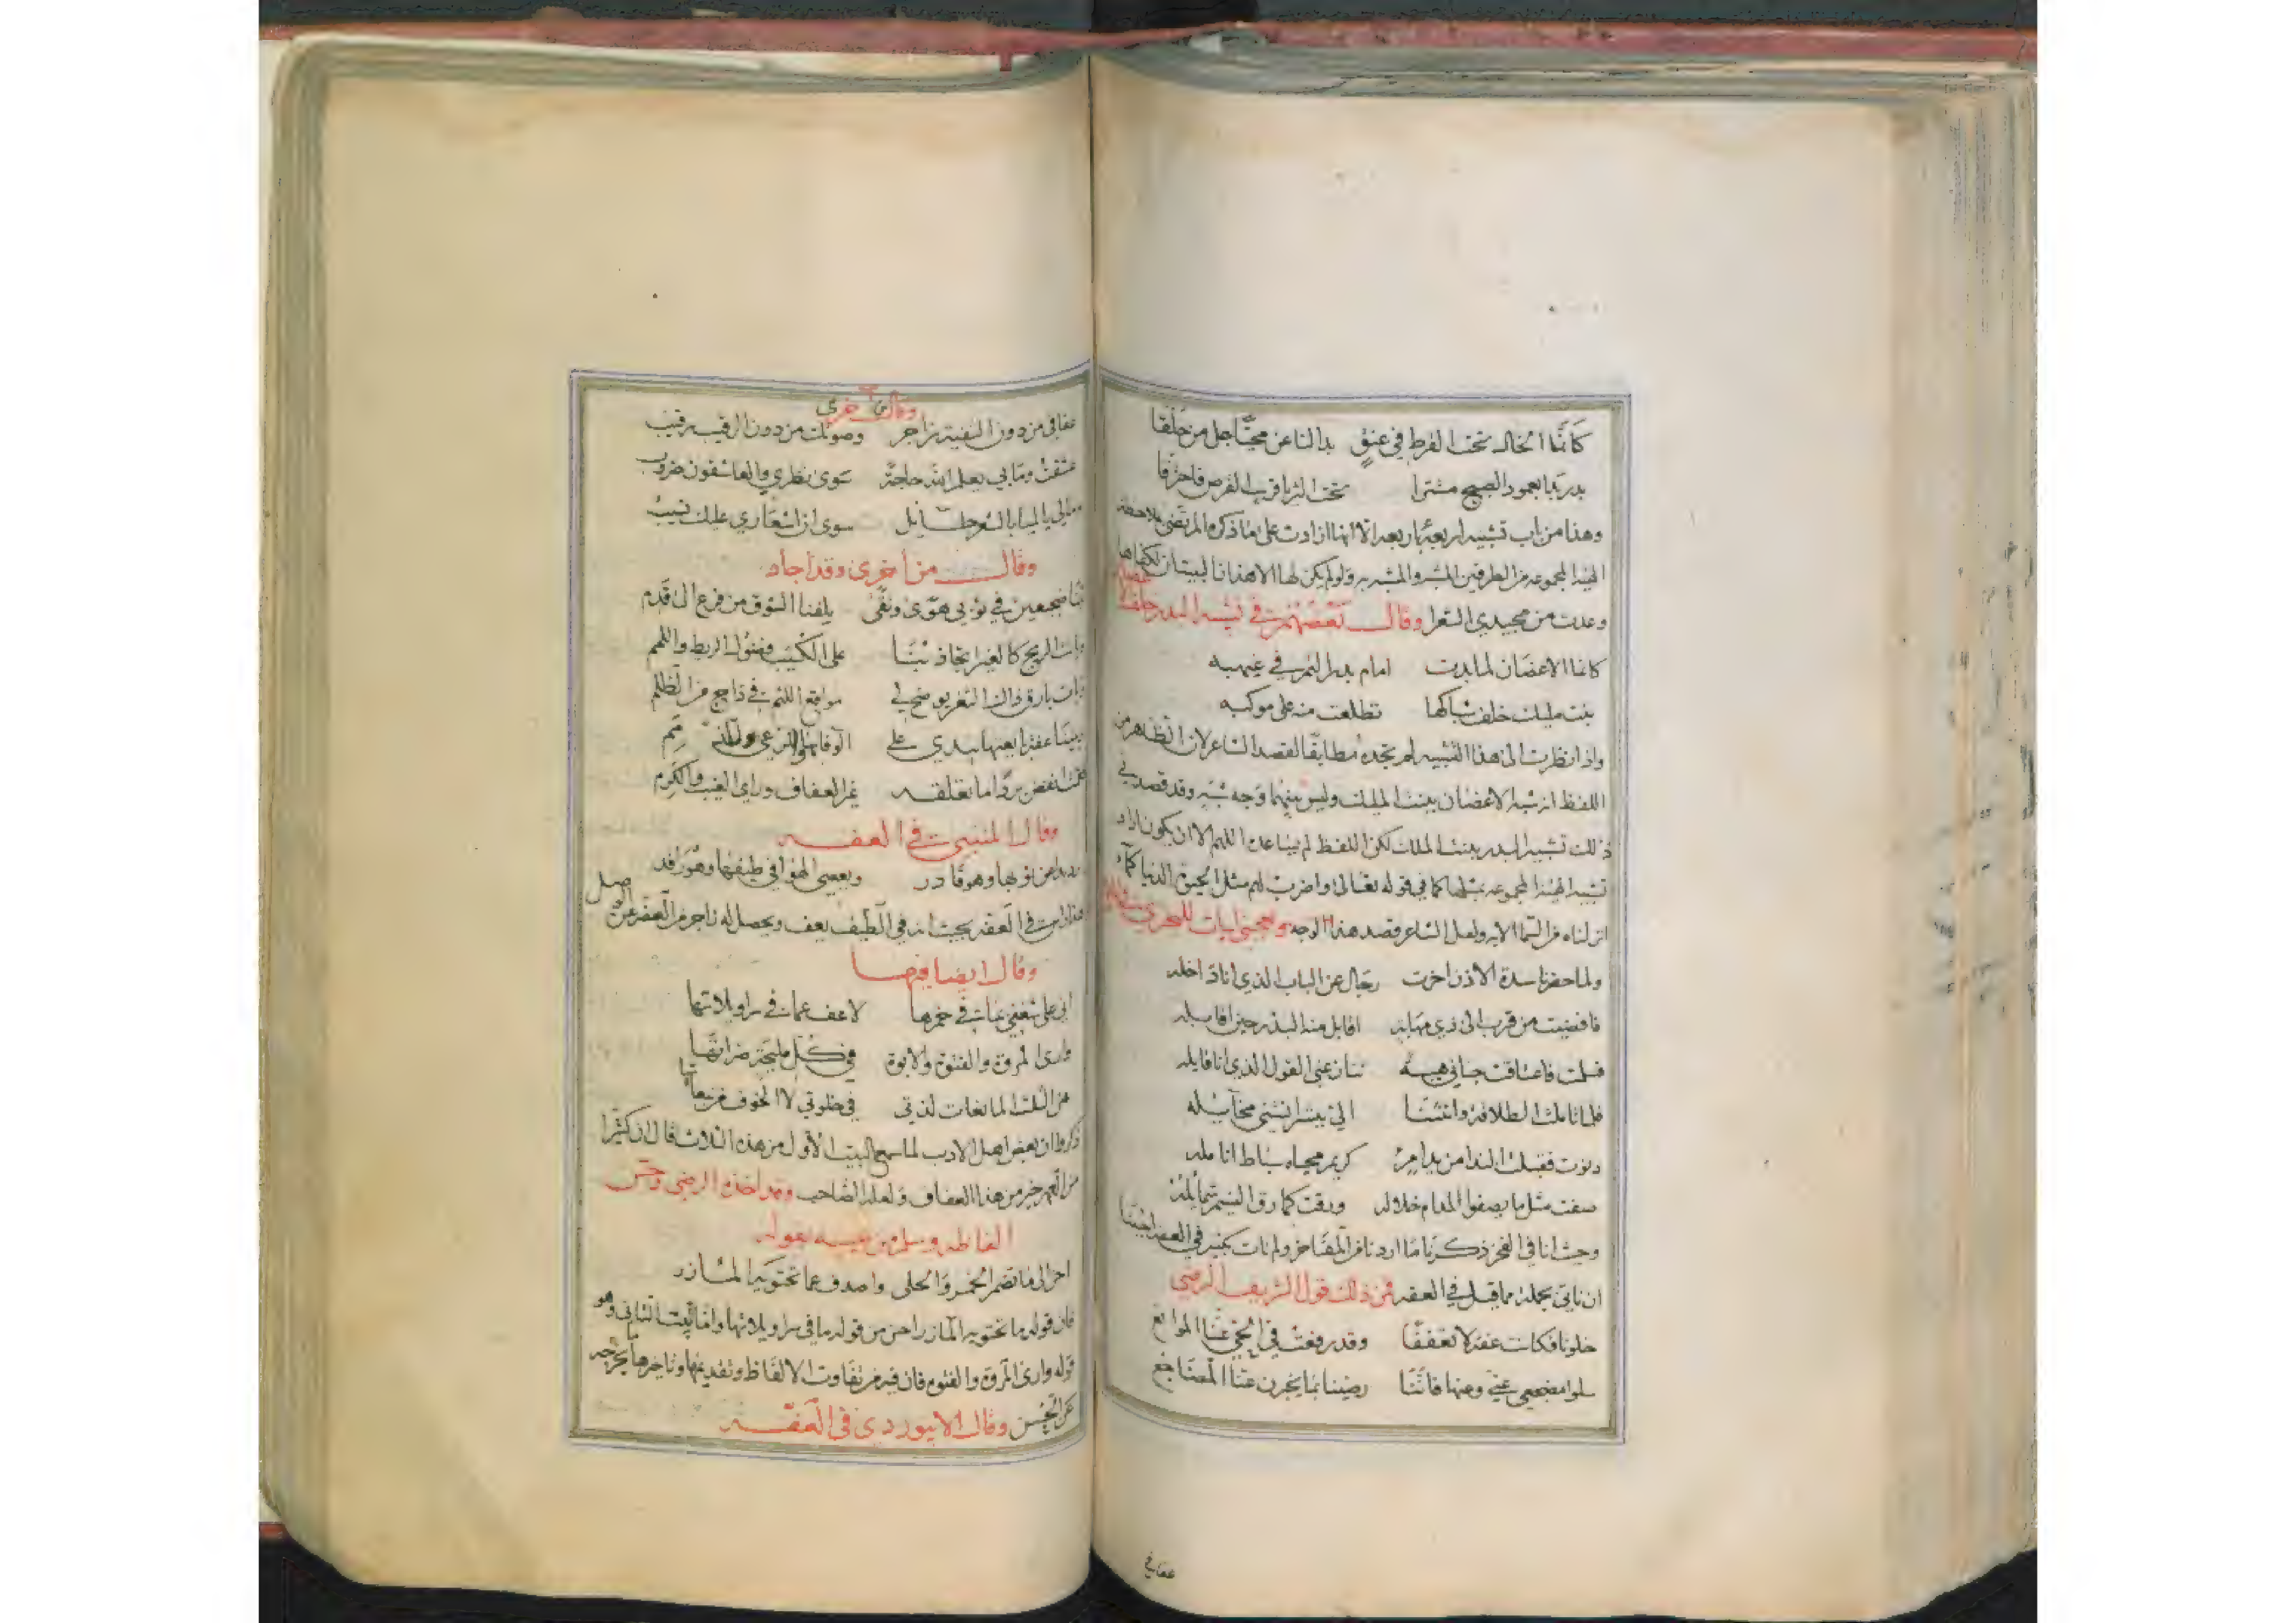 كأنما الخال تحت القرط في عنق بدا لنا عن محيا جل من خلقا
بدر بدا بعمود الصبح مستترا تحت الثريا قريب القرص فاحترقا
وهذا من باب تشبيه اربعة باربعة الا انها ازادت على ما ذكره المرتضى ملاحظة
الهيئة المجموعة من الطرفين المشبه والمشبه به ولو لم يكن لها الا هذان البيتان لكفاها
وعدت من مجيدي الشعرا وقال بعضهم في تشبيه البدر خلف الاغصان
كانما الاغصان لما بدت امام بدر التم في غيهبه
بنت مليك خلف شباكها تطلعت منه على موكبه
واذا نظرت الى هذا التشبيه لم تجده مطابقا لقصد الشاعر لان الظاهر من
اللفظ انه شبه الاغصان ببنت المليك وليس بينهما وجه شبه وقد قصد في
ذلك تشبيه البدر ببنت الملك لكن اللفظ لم يساعده اللهم الا ان يكون اراد
تشبيه الهيئة المجموعة بمثلها كما في قوله تعالى واضرب لهم مثل الحيوة الدنيا كماء
انزلناه من السما الاية ولعل الشاعر قصد هذا الوجه وتعجبني ابيات للبحتري
ولما حضرنا سدة الاذن اخرت رجال عن الباب الذي انا داخله
فافضيت من قرب الى ذي مهابة اقابل منه البدر حين اقابله
فسلمت فاعتاقت جناني هيبة تنازعني القول الذي انا قايله
فلما تاملت الطلاقة وانثنا الي ببشر انستني مخايله
دنوت فقبلت الندا من يد امرء كريم محياه سباط انامله
صفت مثل ما يصفوا المدام خلاله ورقت كما رق النسيم شمايله
وحيث انا في الفخر ذكرنا ما اردنا من المفاخر ولم نات بكثير في العفة احببنا
ان ناتي بجملة مما قيل في العفة فمن ذلك قول الشريف الرضي
خلونا فكانت عفة لا تعففا وقد رفعت في الحي عنا الموانع
سلوا مضجعي عني وعنها فاننا رضينا بما يخبرن عنا المضاجع
عفافي
وقال من اخرى
عفافي من دون التقية زاجر وصونك من دون الرقيب رقيب
عشقت وما بي يعلم الله حاجة سوى نظري والعاشقون ضروب
ومالي يا لميا بالشعر طائل سوى ان اشعاري عليك نسيب
وقال من اخرى وقد اجاد
بتنا ضجيعين في ثوبي هوى وتقى يلفنا الشوق من فرع الى قدم
وباتت الريح كالغيرا تجاذبنا على الكثيب فضول الريط واللمم
وبات بارق ذاك الثغر يوضح لي مواقع اللثم في داج من الظلم
وبيننا عفة بايعتها بيدي على الوفا بها والرعي للذمم
وقال المتنبي في العفة
يرد يدا عن ثوبها وهو قادر ويعصي الهوا في طيفها وهو راقد
وقال ايضا فيها
اني على شغفي بما في خمرها لاعف عما في سراويلاتها
وارى المروة والفتوة والابوة في كل مليحة ضراتها
هن الثلث المانعات لذتي في خلوتي لا الخوف من تبعاتها
ذكروا ان بعض اهل الادب لما سمع البيت الاول من هذه الثلاث قال ان كثيرا
من العهر خير من هذا العفاف ولعله الصاحب وقد اخذه الرضي وحسن
الفاظه وسلم من عيبه بقوله
احن الى ما تضمر الخمر والحلى واصدف عما تحتويه المئازر
فان قوله ما تحتويه المآزر احسن من قوله ما في سراويلاتها واما البيت الثاني وهو
قوله وارى المروة والفتوة فان فيه من تفاوت الالفاظ وتقديمها وتاخيرها ما يخرجه
عن الحسن وقال الابيوردي في العفة